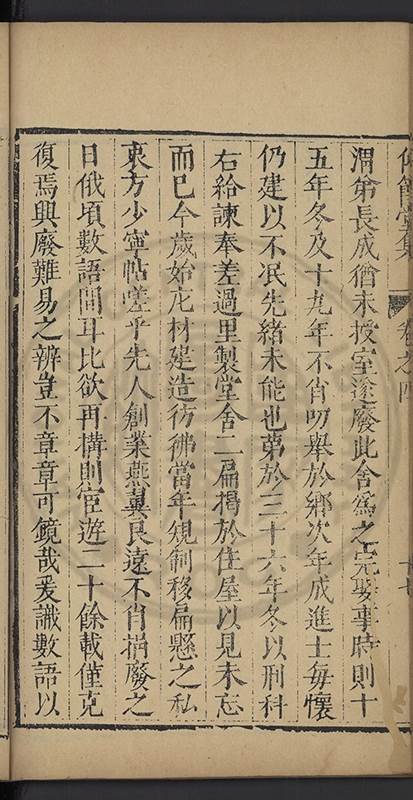 節堂集 卷之四
渭弟長成猶未授室遂廢此舍爲之完娶事時則十
五年冬及十九年不肖叨舉於鄉次年成進士每懷
仍建以不泯先緒未能也第於三十六年冬以刑科
右給諫奉差過里製堂舍二扁揭於住屋以見未忘
而已今歲始庀材建造彷彿當年規制移扁懸之私
衷方少寧帖嗟乎先人創業燕翼良遠不肖捐廢之
日俄頃數語間耳比欲再構則宦遊二十餘載僅克
復焉興廢難易之辨豈不章章可鏡哉爰識數語以